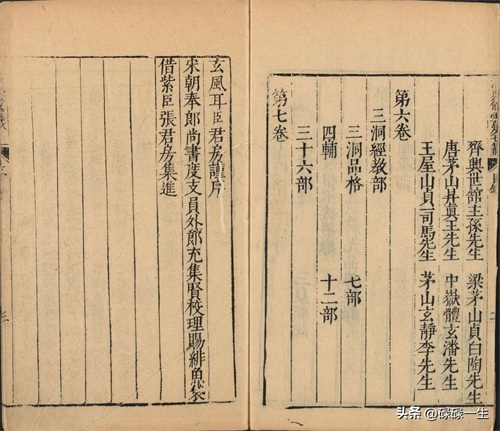 齊興世館主孫先生　梁茅山貞白陶先生
唐茅山昇真王先生　中嶽體玄潘先生
王屋山貞一司馬先生　茅山玄靜李先生
第六卷
三洞經教部
三洞品格　七部
四輔　十二部
三十六部
第七卷
玄風耳臣君房謹序
宋朝奉郎尚書度支員外郎充集賢校理賜緋魚袋
借紫臣張君房集進
头条 @碌碌一生